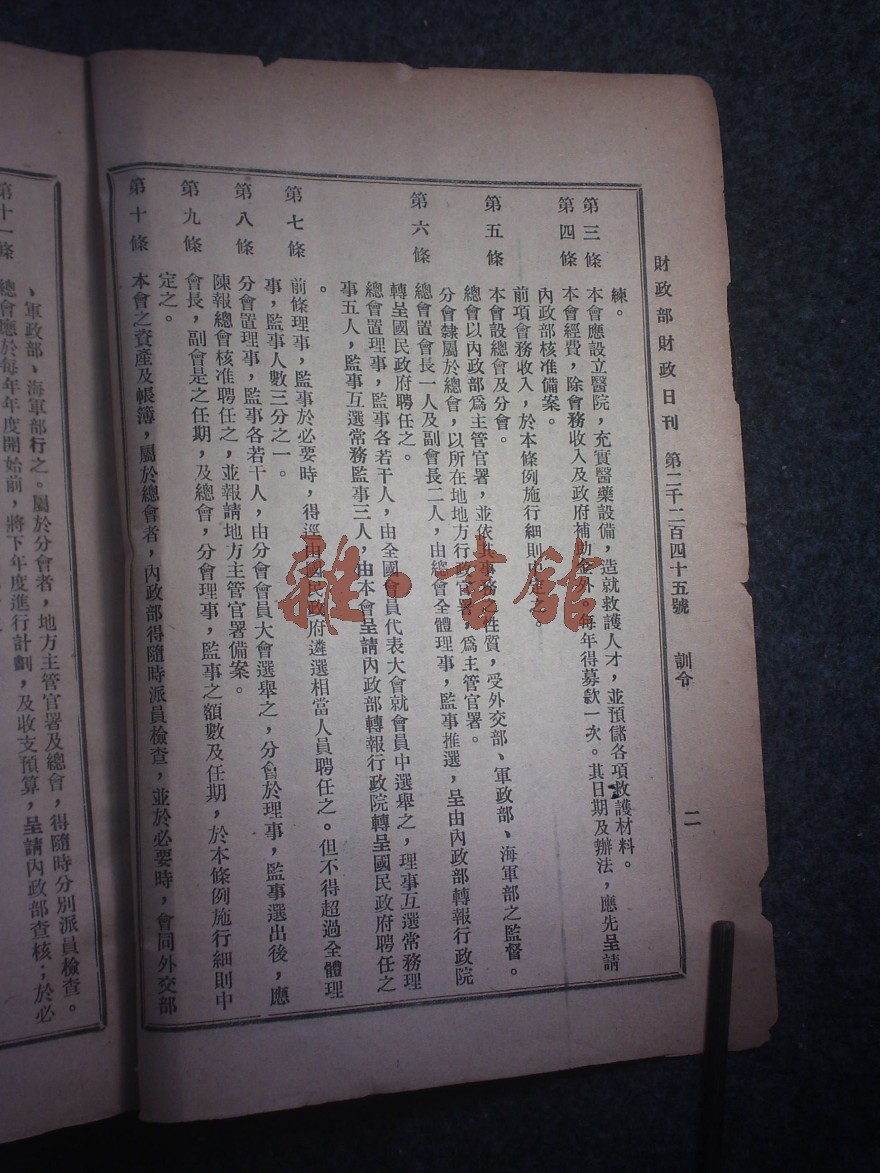 財政部財政日刊 第二千二百四十五號 訓令 二
練。
第三條 本會應設立醫院，充實醫藥設備，造就救護人才，並預儲各項救護材料。
第四條 本會經費，除會務收入及政府補助金外，每年得募款一次。其日期及辦法，應先呈請
內政部核准備案。
前項會務收入，於本條例施行細則中定之。
第五條 本會設總會及分會。
總會以內政部為主管官署，並依其事務之性質，受外交部、軍政部、海軍部之監督。
分會隸屬於總會，以所在地地方行政官署，為主管官署。
第六條 總會置會長一人及副會長二人，由總會全體理事，監事推選，呈由內政部轉報行政院
轉呈國民政府聘任之。
總會置理事，監事各若干人，由全國會員代表大會就會員中選舉之，理事互選常務理
事五人，監事互選常務監事三人，由本會呈請內政部轉報行政院轉呈國民政府聘任之
。
第七條 前條理事，監事於必要時，得逕由國民政府遴選相當人員聘任之。但不得超過全體理
事，監事人數三分之一。
第八條 分會置理事，監事各若干人，由分會會員大會選舉之，分會於理事，監事選出後，應
陳報總會核准聘任之，並報請地方主管官署備案。
第九條 會長，副會是之任期，及總會，分會理事，監事之額數及任期，於本條例施行細則中
定之。
第十條 本會之資產及帳簿，屬於總會者，內政部得隨時派員檢查，並於必要時，會同外交部
、軍政部、海軍部行之。屬於分會者，地方主管官署及總會，得隨時分別派員檢查。
第十一條 總會應於每年年度開始前，將下年度進行計劃，及收支預算，呈請內政部查核；於必
雜·書館